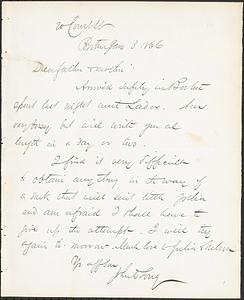 Court St
Boston Jan 3 1866
Dear father & mother
Arrived safely in Boston
spent last night
very busy but will write you at
length in a day or two.
I find it very difficult
to obtain anything in the way of
a that will suit little
and am afraid I shall have to
give up the attempt. I will try
again to-morrow. Much love to Julia &
Yr affte